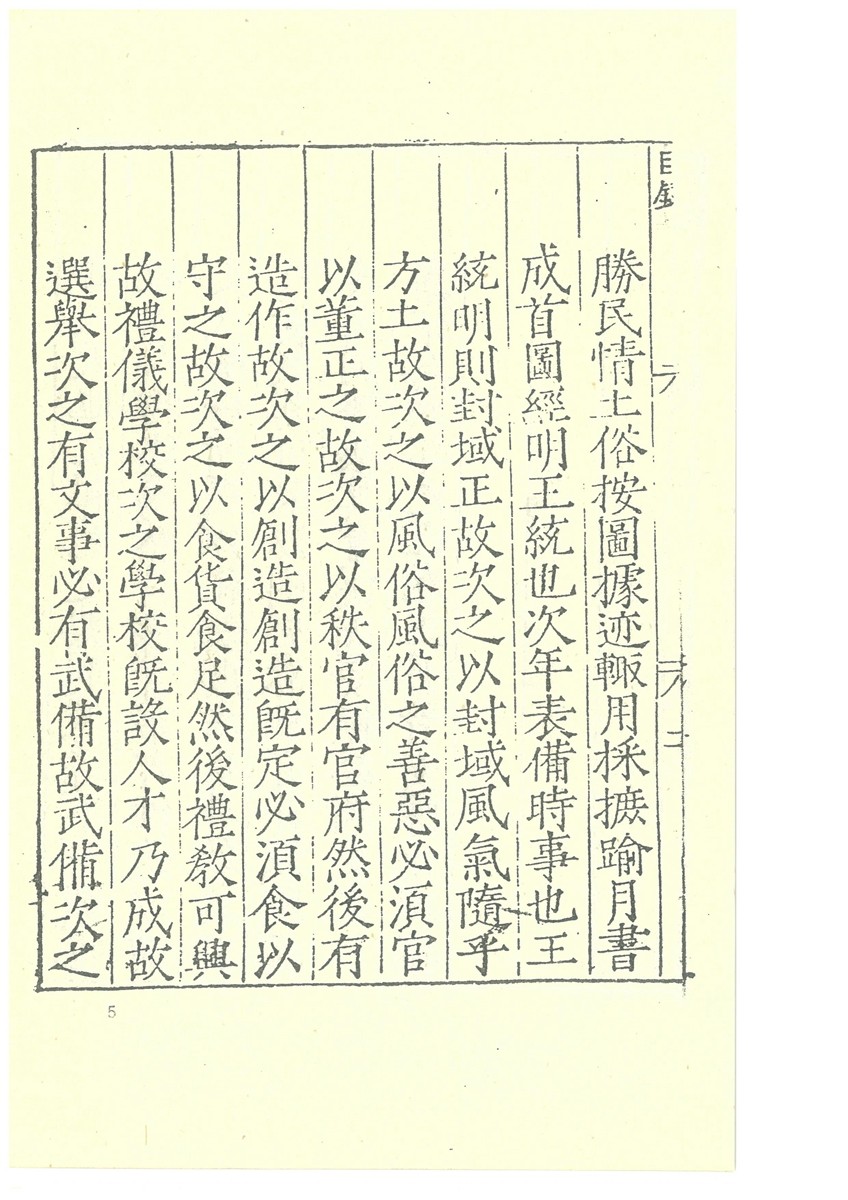 目錄
二
勝民情土俗按圖據迹輙用採摭踰月書
成首圖經明王統也次年表備時事也王
統明則封域正故次之以封域風氣隨乎
方土故次之以風俗風俗之善惡必湏官
以董正之故次之以秩官有官府然後有
造作故次之以創造創造旣定必湏食以
守之故次之以食貨食足然後禮敎可興
故禮儀學校次之學校旣設人才乃成故
選舉次之有文事必有武備故武備次之
5